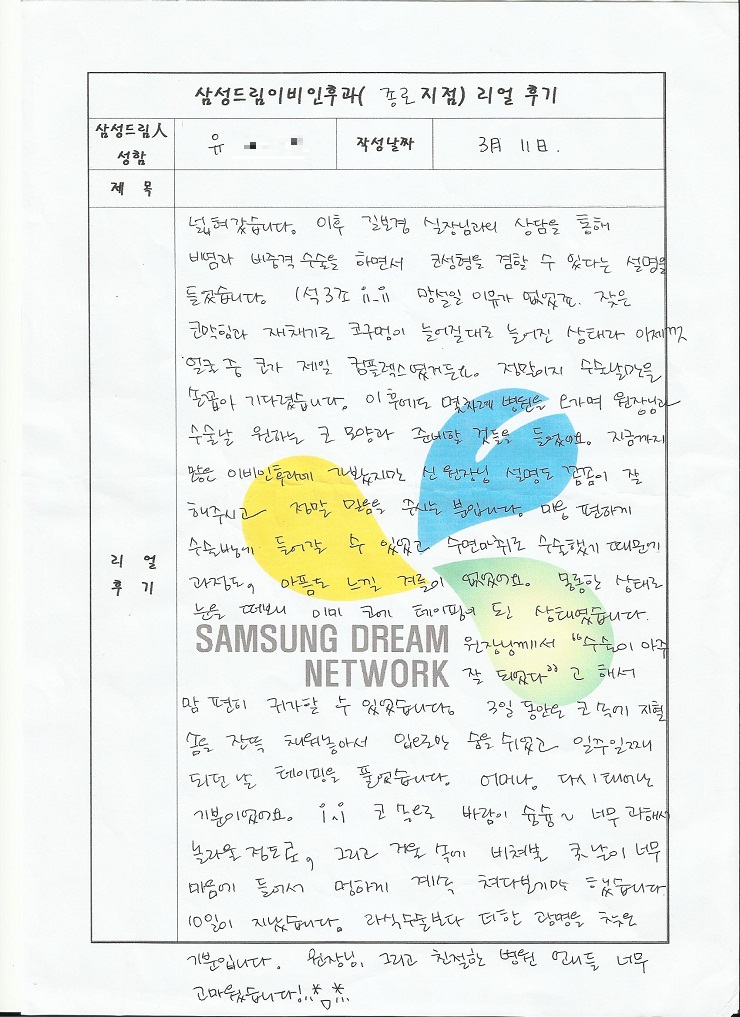 삼성드림이비인후과( 종로 지점) 리얼 후기
삼성드림人
성함
유
작성날짜
3月 11日.
제 목
리 얼
후 기
넓혀갔습니다. 이후 길보경 실장님과의 상담을 통해
비염과 비중격 수술을 하면서 코성형을 겸할 수 있다는 설명을
들었습니다. 1석 3조 ii_ii 망설일 이유가 없었죠. 잦은
코막힘과 재채기로 콧구멍이 늘어질대로 늘어진 상태라
얼굴 중 코가 제일 콤플렉스였거든요. 정확이지 수술날만을
손꼽아 기다렸습니다. 이후에도 몇차례 병원을 오가며 원장님과
수술날 원하는 코 모양과 준비할 것들을 들었어요. 지금까지
많은 이비인후과에 가봤지만 신 원장님 설명도 꼼꼼이 잘
해주시고 정말 믿음을 주시는 분입니다. 마음 편하게
수술방에 들어갈 수 있었고 수면마취로 수술했기 때문에
과정도, 아픔도 느낄 겨를이 없었어요. 몽롱한 상태로
눈을 떠보니 이미 코에 테이핑이 된 상태였습니다.
원장님께서 "수술이 아주
잘 되었다" 고 해서
SAMSUNG DREAM
NETWORK
맘 편히 귀가할 수 있었습니다. 3일 동안은 코 속에 지혈
솜을 잔뜩 채워놓아서 입으로만 숨을 쉬었고 일주일째
되던 날 테이핑을 풀었습니다. 어머나. 다시 태어난
기분이었어요. i.i 코 속으로 바람이 슝슝~ 너무 과해서
놀라울 정도로, 그리고 거울 속에 비쳐볼 콧날이 너무
마음에 들어서 멍하게 계속 쳐다보기만 했습니다
10일이 지났습니다. 라식수술보다 더한 광명을 찾은
기분입니다. 원장님, 그리고 친절한 병원 언니들 너무
고마웠습니다!